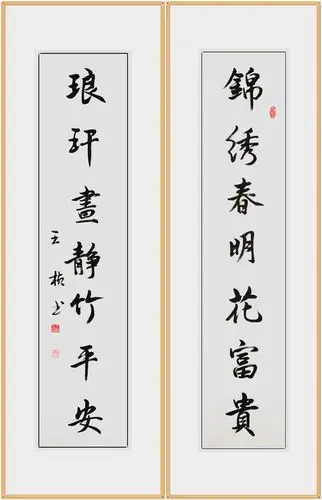 錦綉春明花富貴
琅玕晝靜竹平安
王 书